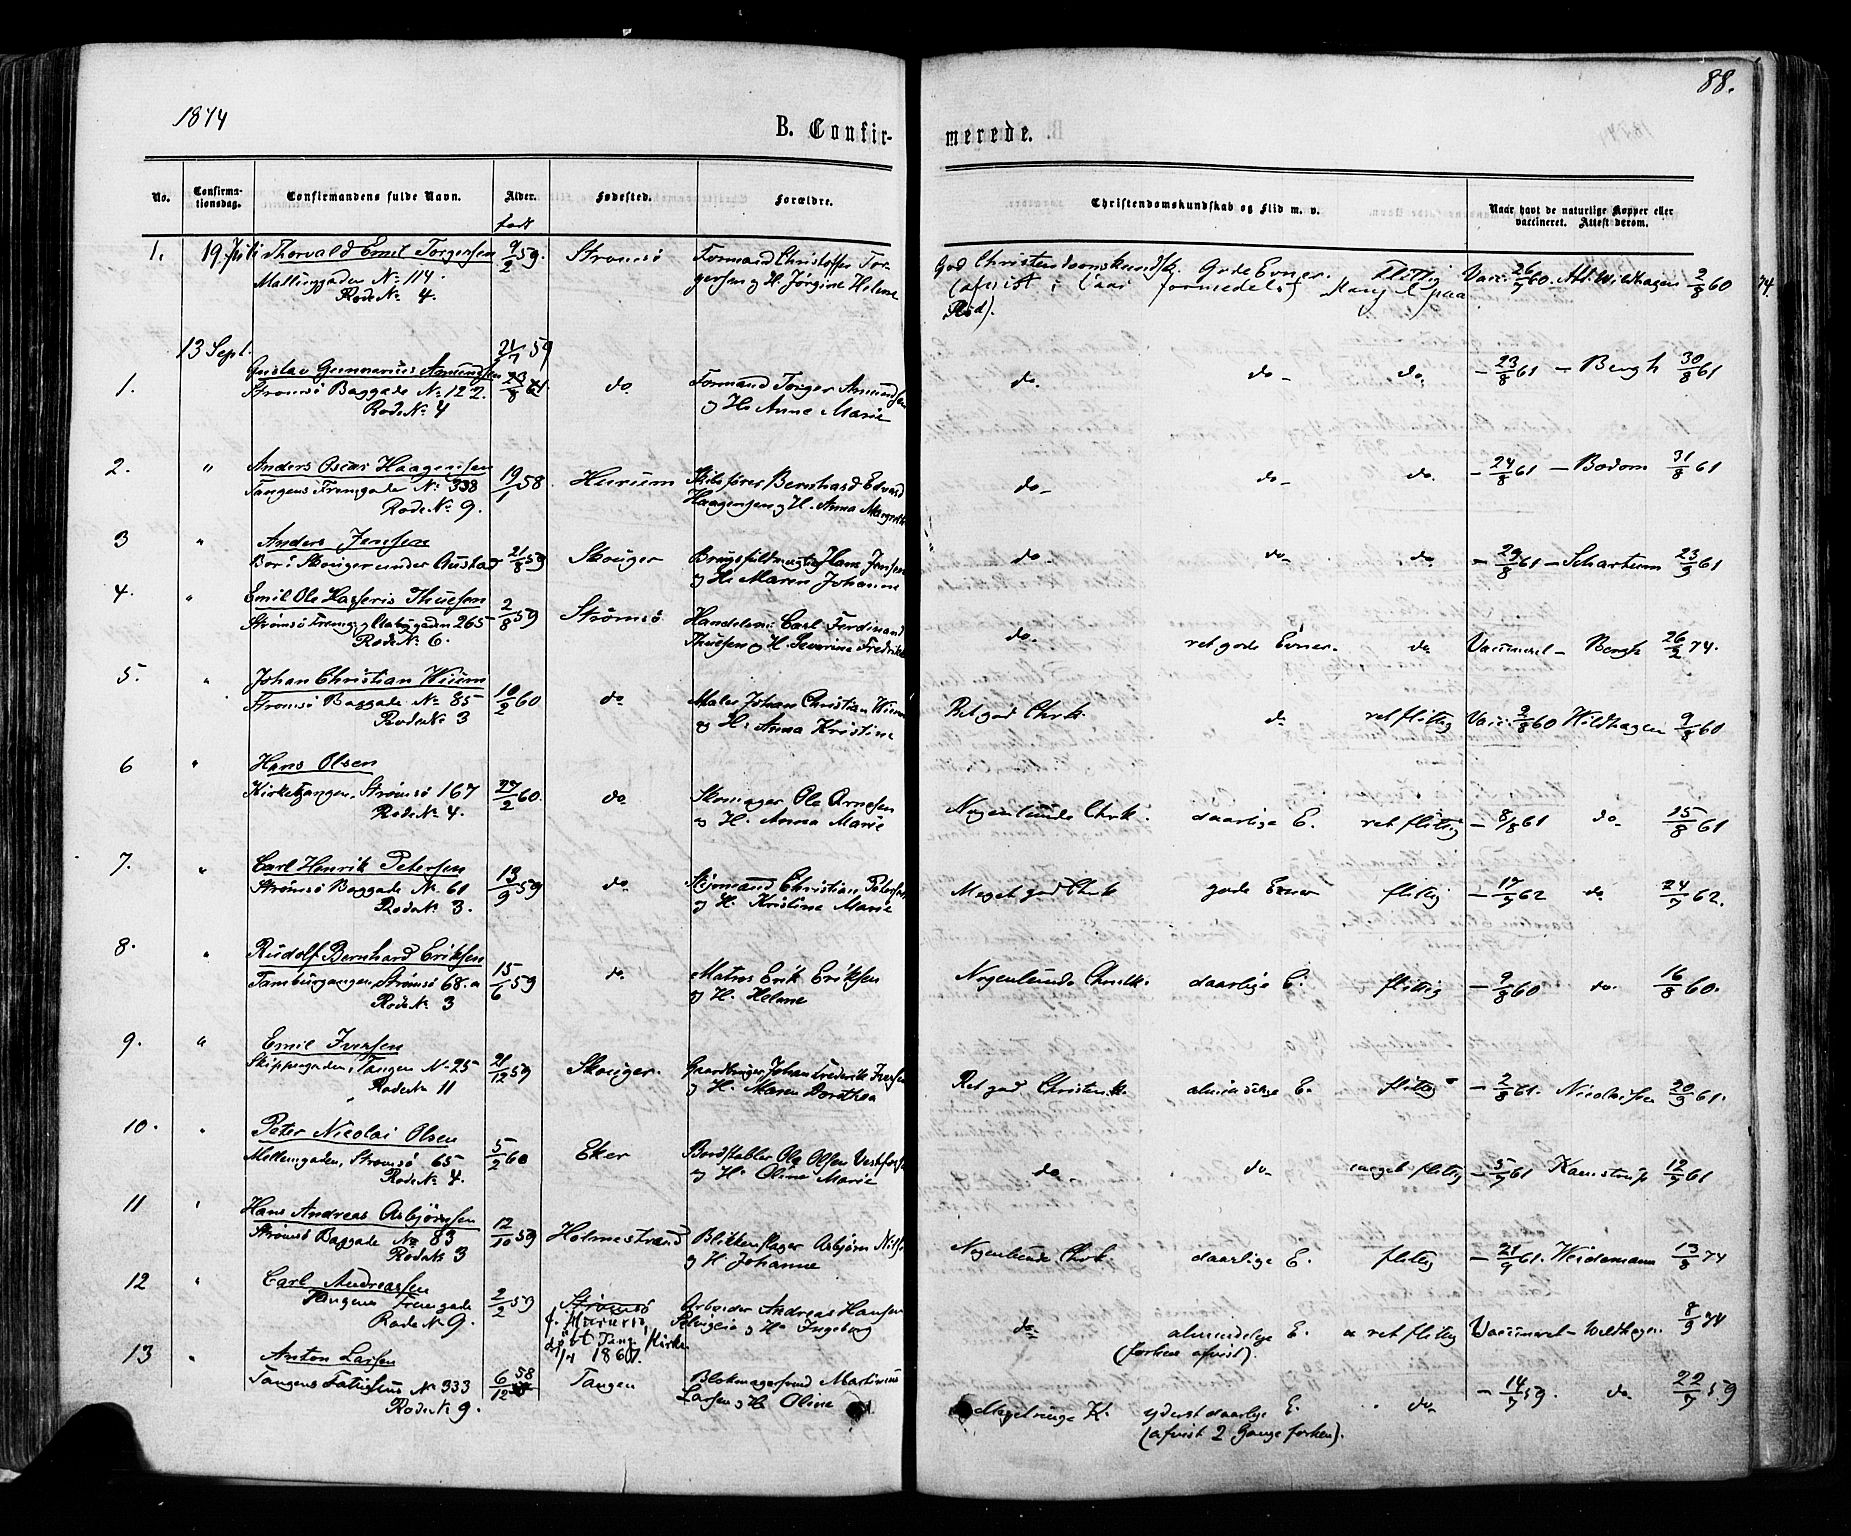 1874
88.
B. Confirmerede.
No. Confirmationsdag. Confirmandens fulde Navn. Alder. Fødested. Forældre. Christendomskundskab og Flid m. v. Naar havt de naturlige Kopper eller vaccineret. Attest derom.
født
1. 19 Juli Thorvald Emil Torgersen 9/2 59. Strømsø Formand Christoffer Tor- God Christendomskundsk. Gode Evner. Flittig Vacc. 26/7 60. Att. Wildhagen 2/8 60
Mallinggaden No 114. gersen og H. Jørgine Helene (afvist i Vaar formedelst Mangel paa
Rode No 4. Raad).
13 Sept. 21/7 59
1. Gustav Gunnarius Amundsen 23/8 61 do Formand Torger Amundsen do. do do. - 23/8 61 - Bergh 30/8 61
Strømsø Baggade No 122. og H. Anne Marie
Rode No 4
2. " Anders Oscar Haagensen 19/1 58. Hurum Skibsfører Bernhard Edvard do do do. - 24/8 61 - Bodom 31/8 61
Tangens Fremgade No 338 Haagensen og H. Anna Margrethe
Rode No 9.
3 " Anders Jensen 21/8 59 Skouger Brugsfuldmægtig Hans Jensen do do do. - 29/8 61 - Schartum 23/9 61
Bor i Skouger under Gustad og H. Maren Johanne
4. " Emil Ole Hasseris Thuesen 2/8 59 Strømsø Handelsm: Carl Ferdinand do. ret gode Evner. do Vaccineret - Bergh 26/2 74.
Strømsø Fremg. 265 Thuesen og H. Severine Fredrikke
Rode No 6.
5. " Johan Christian Wiium 10/2 60 do Maler Johan Christian Wiium Ret god Chrk. do ret flittig Vacc: 2/8 60 Wildhagen 9/8 60
Strømsø Baggade No 85 og H. Anna Kristine
Rode No 3
6 " Hans Olsen 27/2 60. do Skomager Ole Arnesen Nogenlunde Chrk. daarlige E. ret flittig - 8/8 61 do 15/8 61
Kirketangen, Strømsø 167 og H. Anna Marie
Rode No 4.
7. " Carl Henrik Petersen 13/9 59 do Styrmand Christian Petersen Meget god Chrk gode Evner flittig - 17/7 62 do 24/7 62.
Strømsø Baggade No 61 og H. Kristine Marie
Rode No 3.
8. " Rudolf Bernhard Eriksen 15/6 59 do. Matros Erik Eriksen Nogenlunde Chrstk. daarlige E. flittig - 9/8 60 do. 16/8 60.
Tamburgangen, Strømsø 68. a og H. Helene
Rode No 3
9. " Emil Iversen 21/12 59 Skouger. Gaardbruger Johan Frederik Iversen Ret god Christenk. almindelige E. flittig - 2/8 61. Nicolaisen 20/9 61.
Skippergaden, Tangen No 25 og H. Maren Dorothea
Rode No 11
10. " Peter Nicolai Olsen 5/2 60 Eker Bordstabler Ole Olsen Vestfossen do do meget flittig - 5/7 61 Kamstrup 12/7 61
Mellemgaden, Strømsø 65 og H. Oline Marie
Rode No 4.
11 " Hans Andreas Asbjørnsen 12/10 59 Holmestrand Blikkenslager Asbjørn Nils. Nogenlunde Chrk. daarlige E. flittig - 21/9 61. Weidemann 13/8 74
Strømsø Baggade No 83 og H. Johanne
Rode No 3
12 " Carl Andreassen 2/2 59 Strømsø Arbeider Andreas Hansen do almindelige E. ret flittig Vaccineret - Wildhagen 8/9 74
Tangens Fremgade f. Hurum, og H. Ingeborg (forhen afvist).
Rode No 9. døbt Tang. Kirke
1/4 1860.
13 " Anton Larsen 6/12 58 Tangen Blokmagersvend Martinius Meget ringe K. yderst daarlige E. do - 14/7 59. do 22/7 59
Tangens Fattighus No 333 Larsen og H. Oline (afvist 2 Gange forhen).
Rode No 9.